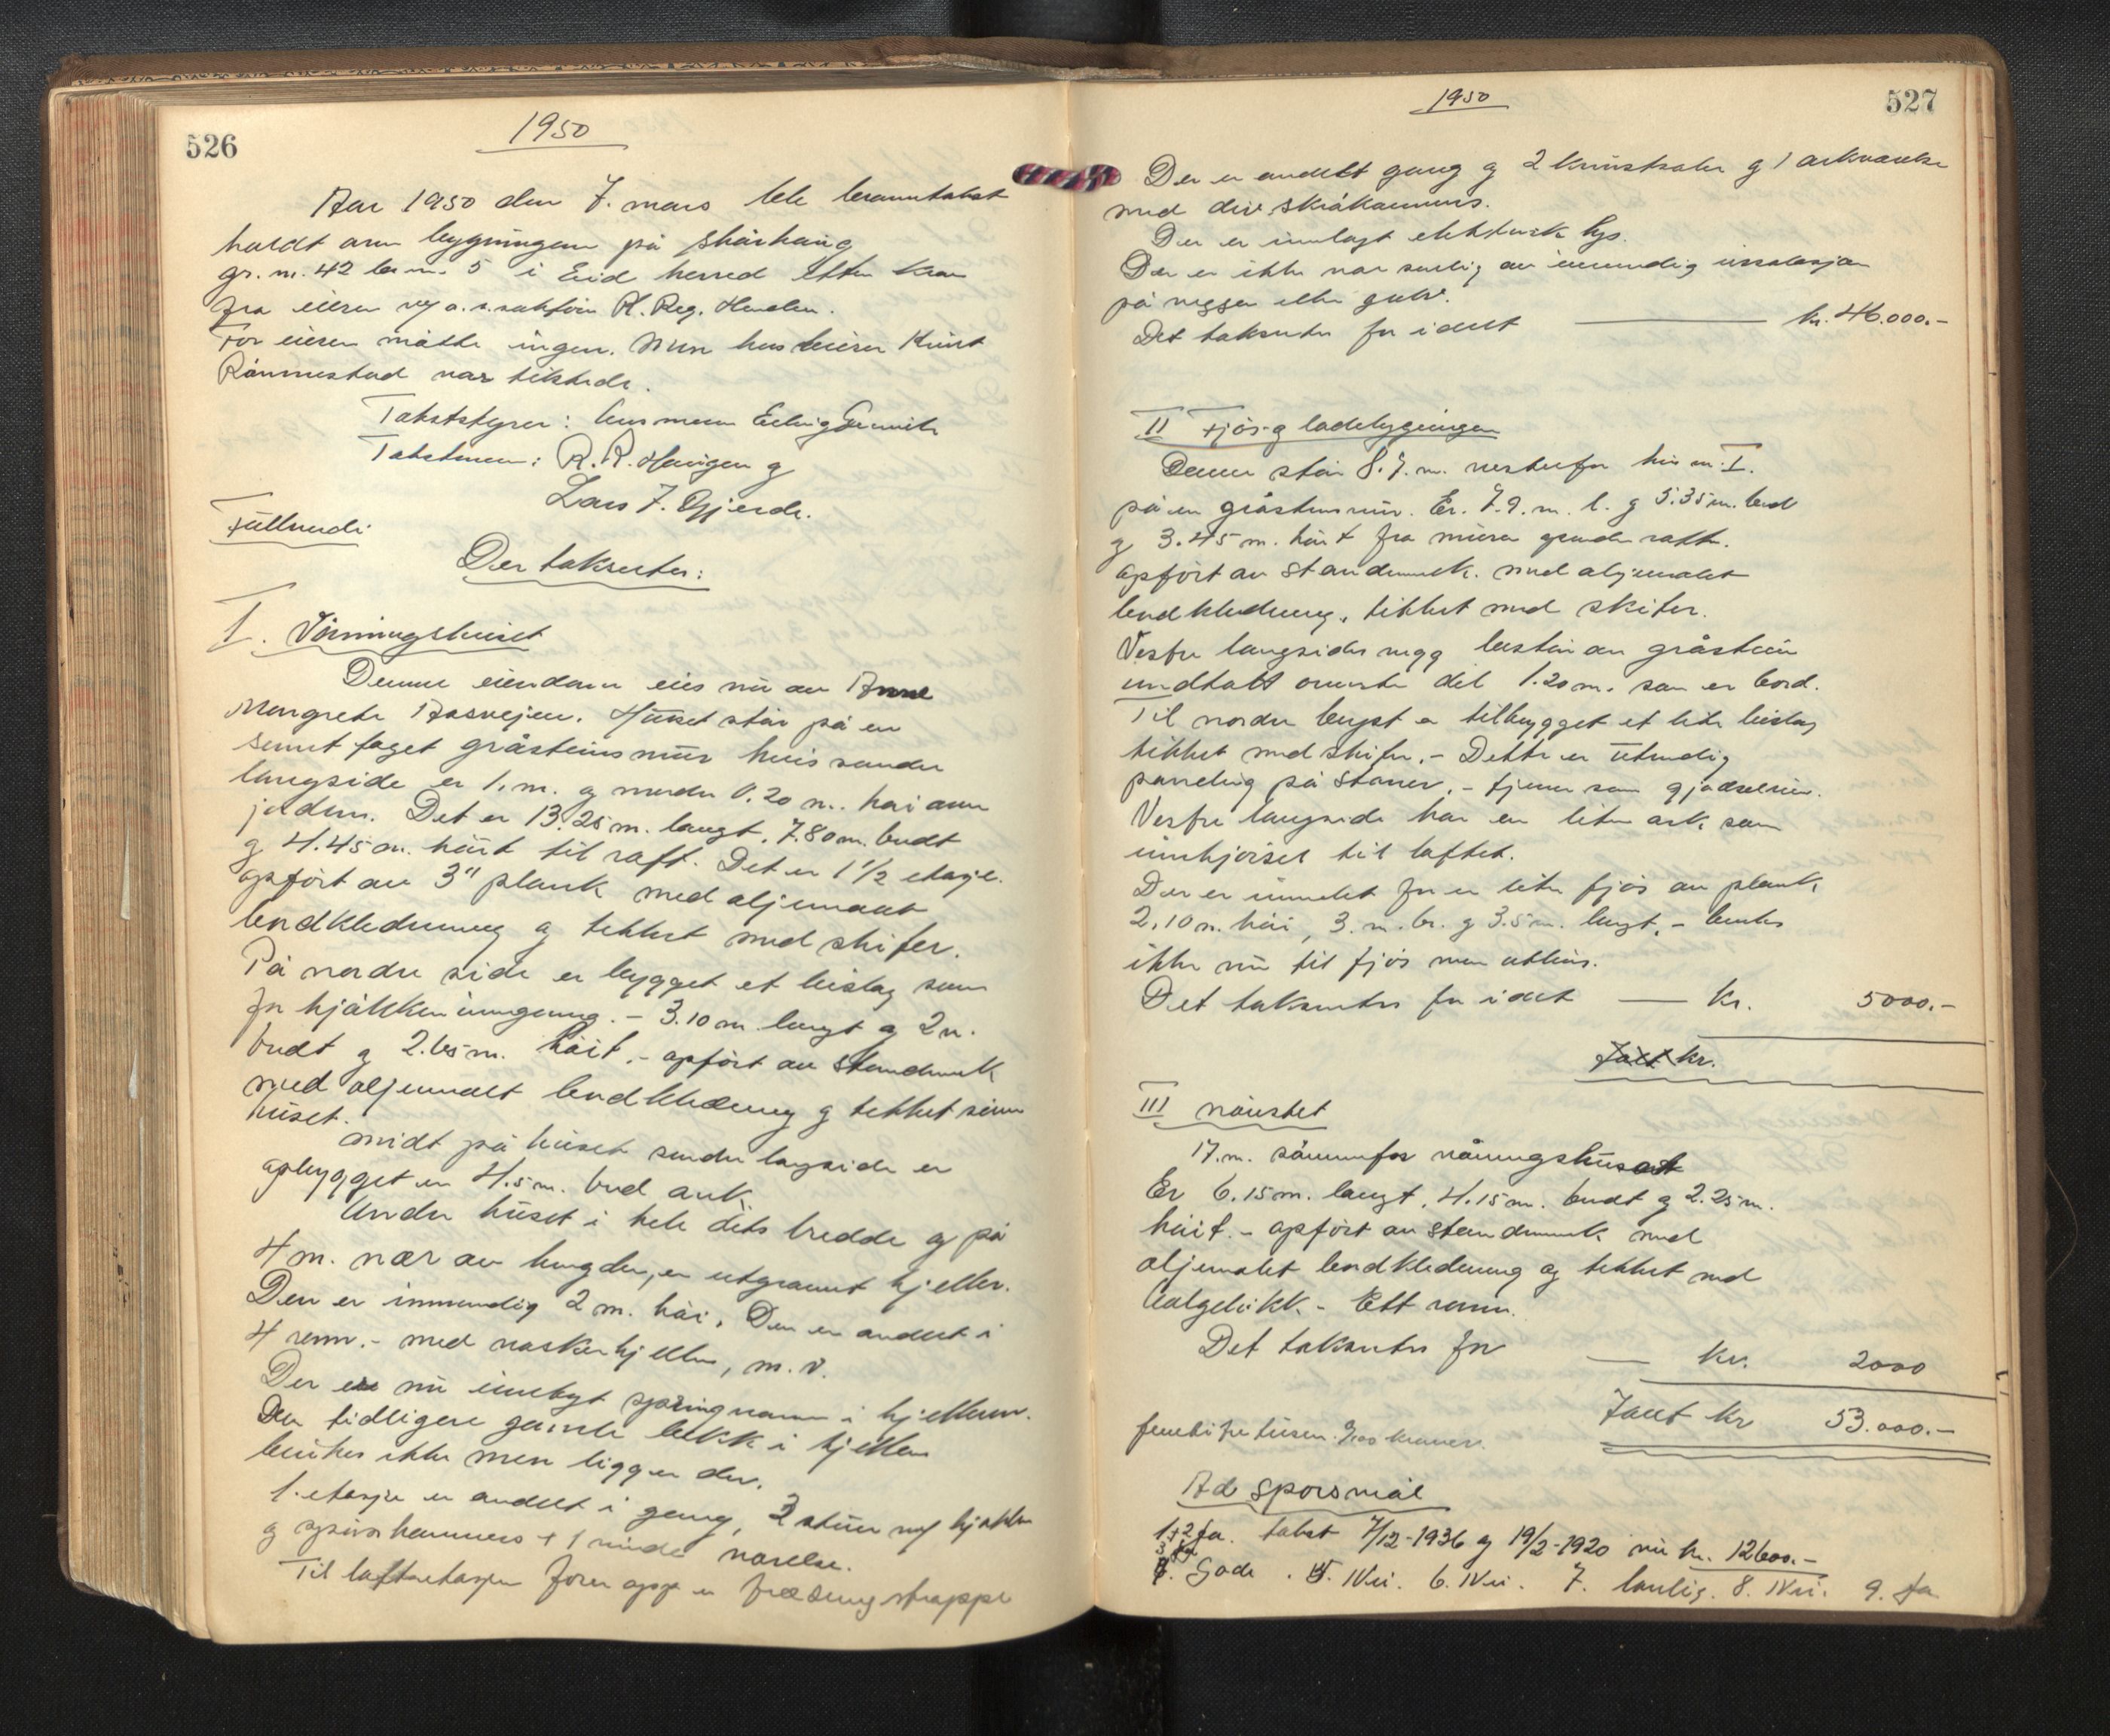 526
1950
Aar 1950 den 7. mars ble branntakst
holdt over bygningene på
gr. nr. 42 br. nr. 5 i Eid herred etter krav
fra eieren v/ o.r.sakfører R. Reg.
For eieren møtte ingen. Men hos eieren Knut
Rønnestad var tilstede.
Takststyrer: lensmann Erling
Takstmenn: R. R. Haugen og
Lars J. Gjerde.
Fullverdi
Der takseres:
I. Våningshuset
Denne eiendom eies nu av Anne
Margrete Aasvejen. Huset står på en
sement faget gråsteins mur hvis søndre
langside er 1. m. og nordre 0.20 m. høi over
jorden. Det er 13.25 m. langt, 7.80 m. bredt
og 4.45 m. høit til raft. Det er 1 1/2 etasje.
opført av 3" plank med oljemalt
bordkledning og tekket med skifer.
På nordre side er bygget et bislag som
for kjøkken inngang. - 3.10 m. langt og 2 m.
bredt og 2.65 m. høit, - opført av stenderverk
med oljemalt bordkledning og tekket som
huset.
Midt på huset søndre langside er
opbygget en 4.5 m. bred ark.
Under huset i hele dets bredde og på
4 m. nær av lengden, er utgravet kjeller.
Den er innvendig 2 m. høi. Den er avdelt i
4 rom. - med vaskerkjeller, m. v.
Der er nu innlagt springvann i kjelleren.
Den tidligere gamle bekk i kjelleren
brukes ikke men ligger der.
1. etasje er avdelt i gang, 2 stuer m/ kjøkken
og spiskammers + 1 mindre værelse.
Til loftsetasjen fører opp en trapp
527
1950
Der er avdelt gang og 2 kvistsaler og 1 arkværelse
med div. skråkammers.
Der er innlagt elektrisk lys.
Der er ikke noe særlig av innvendig
på vegger eller gulv.
Det takseres for i det — kr. 46.000.-
II Fjøs og ladebygningen
Denne står 8.7. m. vestenfor hus nr. I.
på en gråstensmur. Er 7.9. m. l. og 5.35 m. bred
og 3.45 m. høit fra muren øvre raft.
opført av stenderverk. med oljemalet
bordkledning, tekket med skifer.
Vestre langsides vegg består av gråstein
undtatt øverste del 1.20 m. som er bord.
Til nordre langs er tilbygget et lite bislag
tekket med skifer. - Dette er utvendig
panelering på staver, - tjener som gjødselrum.
Vestre langside har en liten ark som
innkjørsel til loftet.
Der er innredet for en liten fjøs av plank,
2.10 m. høi, 3. m. br. og 3.5 m. langt, - brukes
ikke nu til fjøs men utleies.
Det takseres for i det — kr. 5000.-
Ialt kr.
III nøustet
17. m. sønnenfor våningshuset
Er 6.15 m. langt, 4.15 m. bredt og 2.25 m.
høit. - opført av stenderverk med
oljemalet bordkledning og tekket med
bølgeblikk. - Ett rum.
Det takseres for — kr. 2000
Ialt kr 53.000.-
femtitre tusen kroner.
Ad spørsmål
1+2 Ja. takst 7/12-1936 og 19/2-1920 nu kr. 12600.-
3 Ja
4. Gode. 5. Nei. 6. Nei. 7. lovlig. 8. Nei. 9. Ja